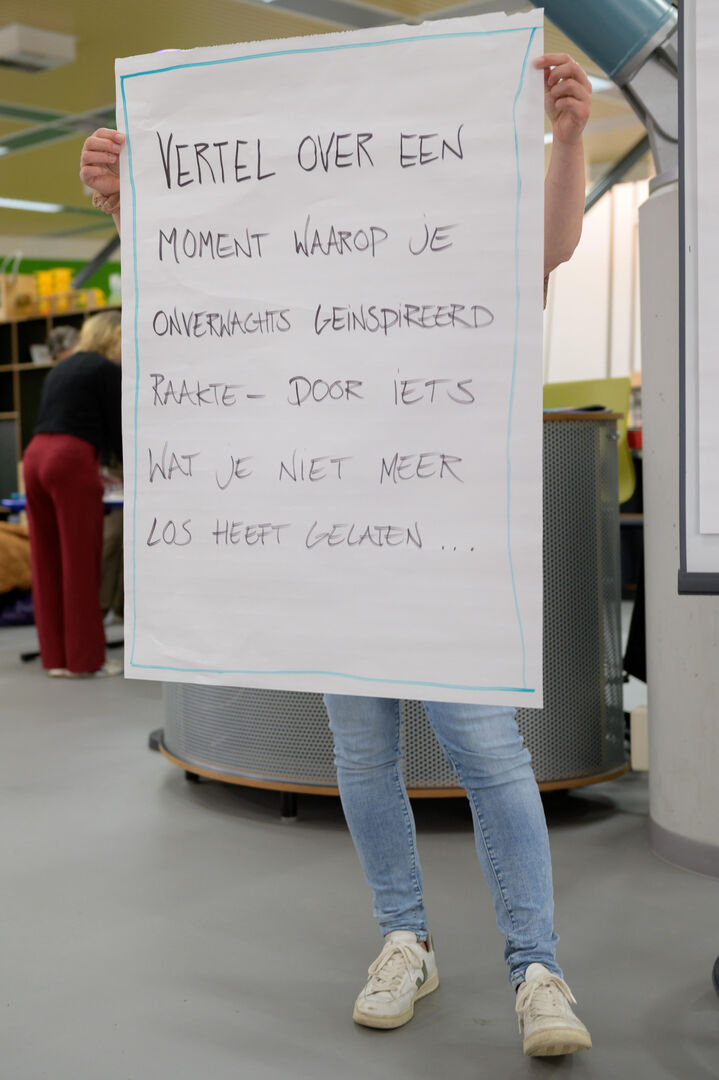 VERTEL OVER EEN
MOMENT WAAROP JE
ONVERWACHTS GEINSPIREERD
RAAKTE - DOOR IETS
WAT JE NIET MEER
LOS HEEFT GELATEN ...